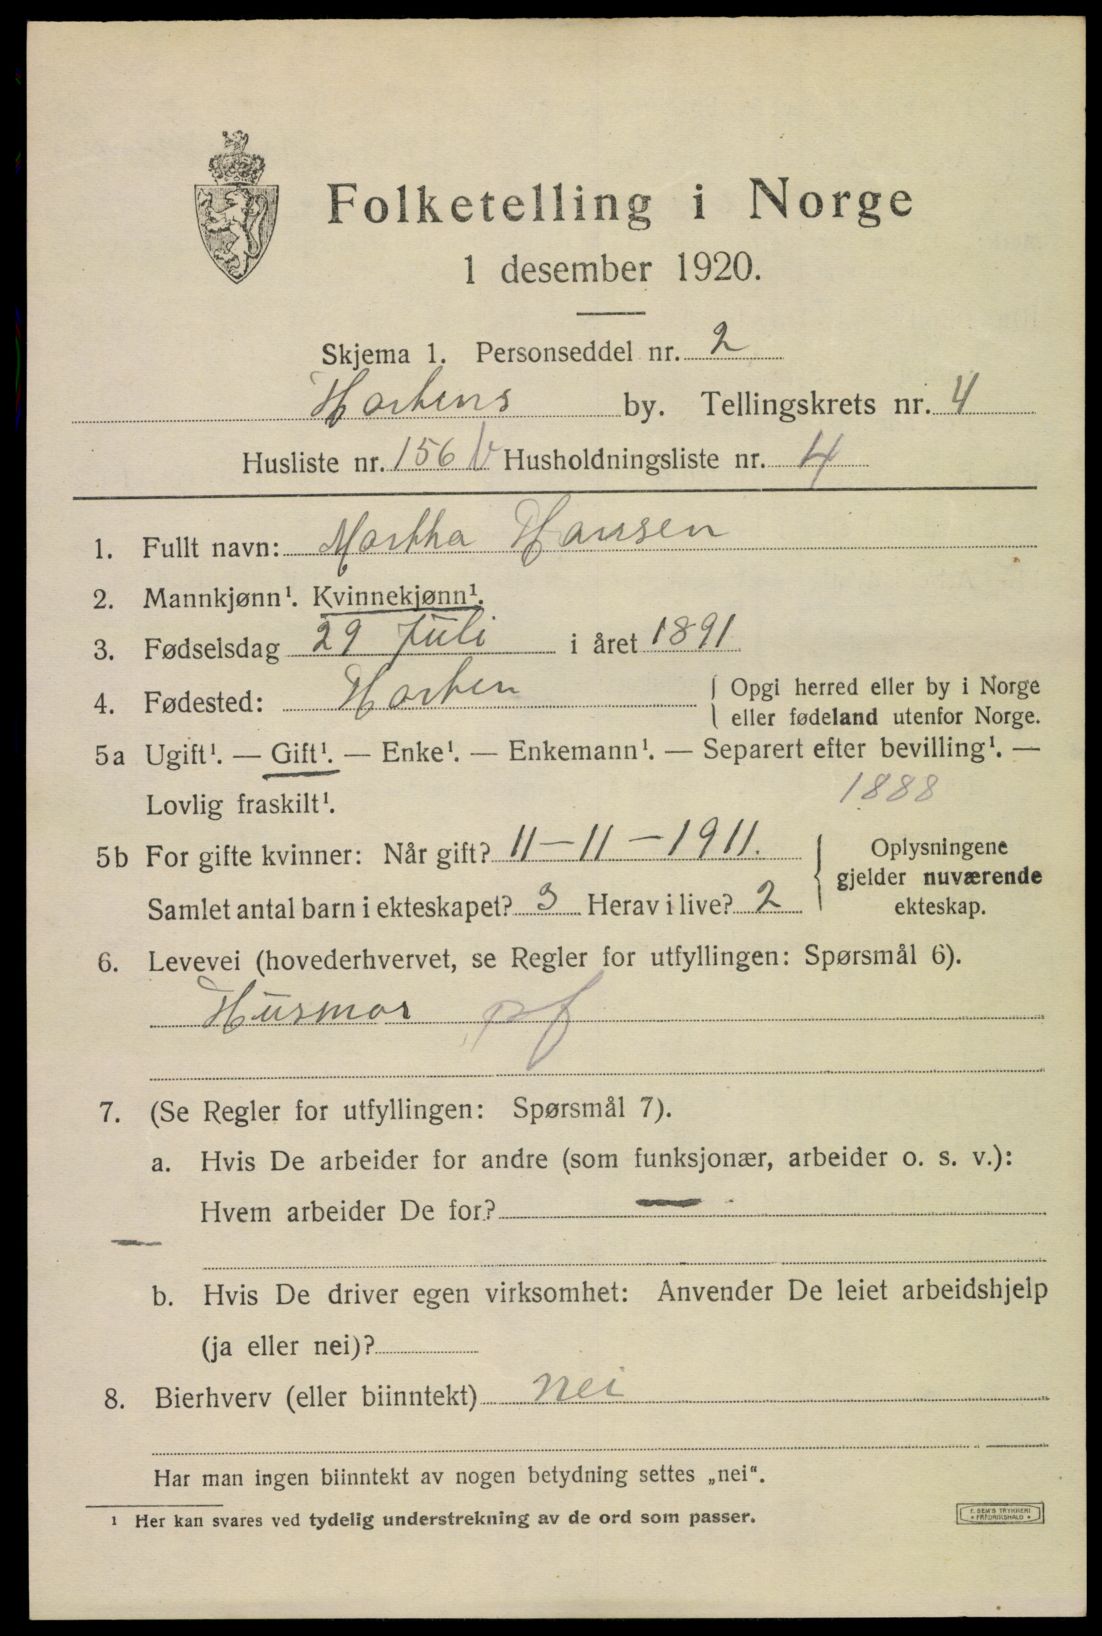 Folketelling i Norge
1 desember 1920.
Skjema 1. Personseddel nr. 2
Hortens by. Tellingskrets nr. 4
Husliste nr. 156 b Husholdningsliste nr. 4
1. Fullt navn: Martha Hansen
2. Mannkjønn¹. Kvinnekjønn¹.
3. Fødselsdag 29 Juli i året 1891
4. Fødested: Horten { Opgi herred eller by i Norge
eller fødeland utenfor Norge.
5a Ugift¹. — Gift¹. — Enke¹. — Enkemann¹. — Separert efter bevilling¹. —
Lovlig fraskilt¹. 1888
5b For gifte kvinner: Når gift? 11-11-1911. } Oplysningene
gjelder nuværende
Samlet antal barn i ekteskapet? 3 Herav i live? 2 ekteskap.
6. Levevei (hovederhvervet, se Regler for utfyllingen: Spørsmål 6).
Husmor pf
7. (Se Regler for utfyllingen: Spørsmål 7).
a. Hvis De arbeider for andre (som funksjonær, arbeider o. s. v.):
Hvem arbeider De for? —
—
b. Hvis De driver egen virksomhet: Anvender De leiet arbeidshjelp
(ja eller nei)?
8. Bierhverv (eller biinntekt) nei
Har man ingen biinntekt av nogen betydning settes „nei“.
¹ Her kan svares ved tydelig understrekning av de ord som passer.
E. SEM'S TRYKKERI
• FREDRIKSHALD •